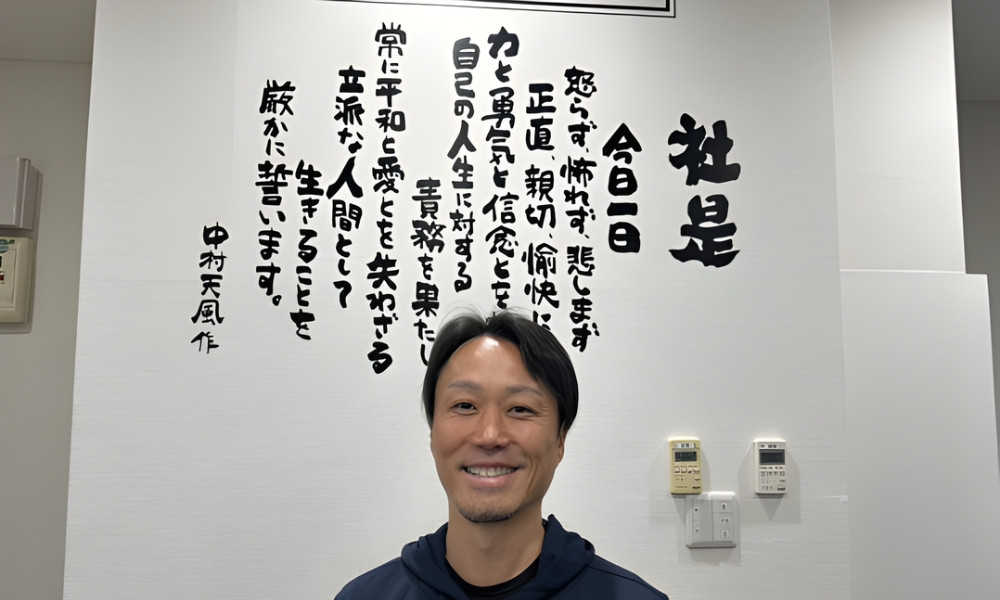 社是
今日一日
怒らず、怖れず、悲しまず
正直、親切、愉快に
力と勇気と信念とを
自己の人生に対する
責務を果たし
常に平和と愛とを失わざる
立派な人間として
生きることを
厳かに誓います。
中村天風作